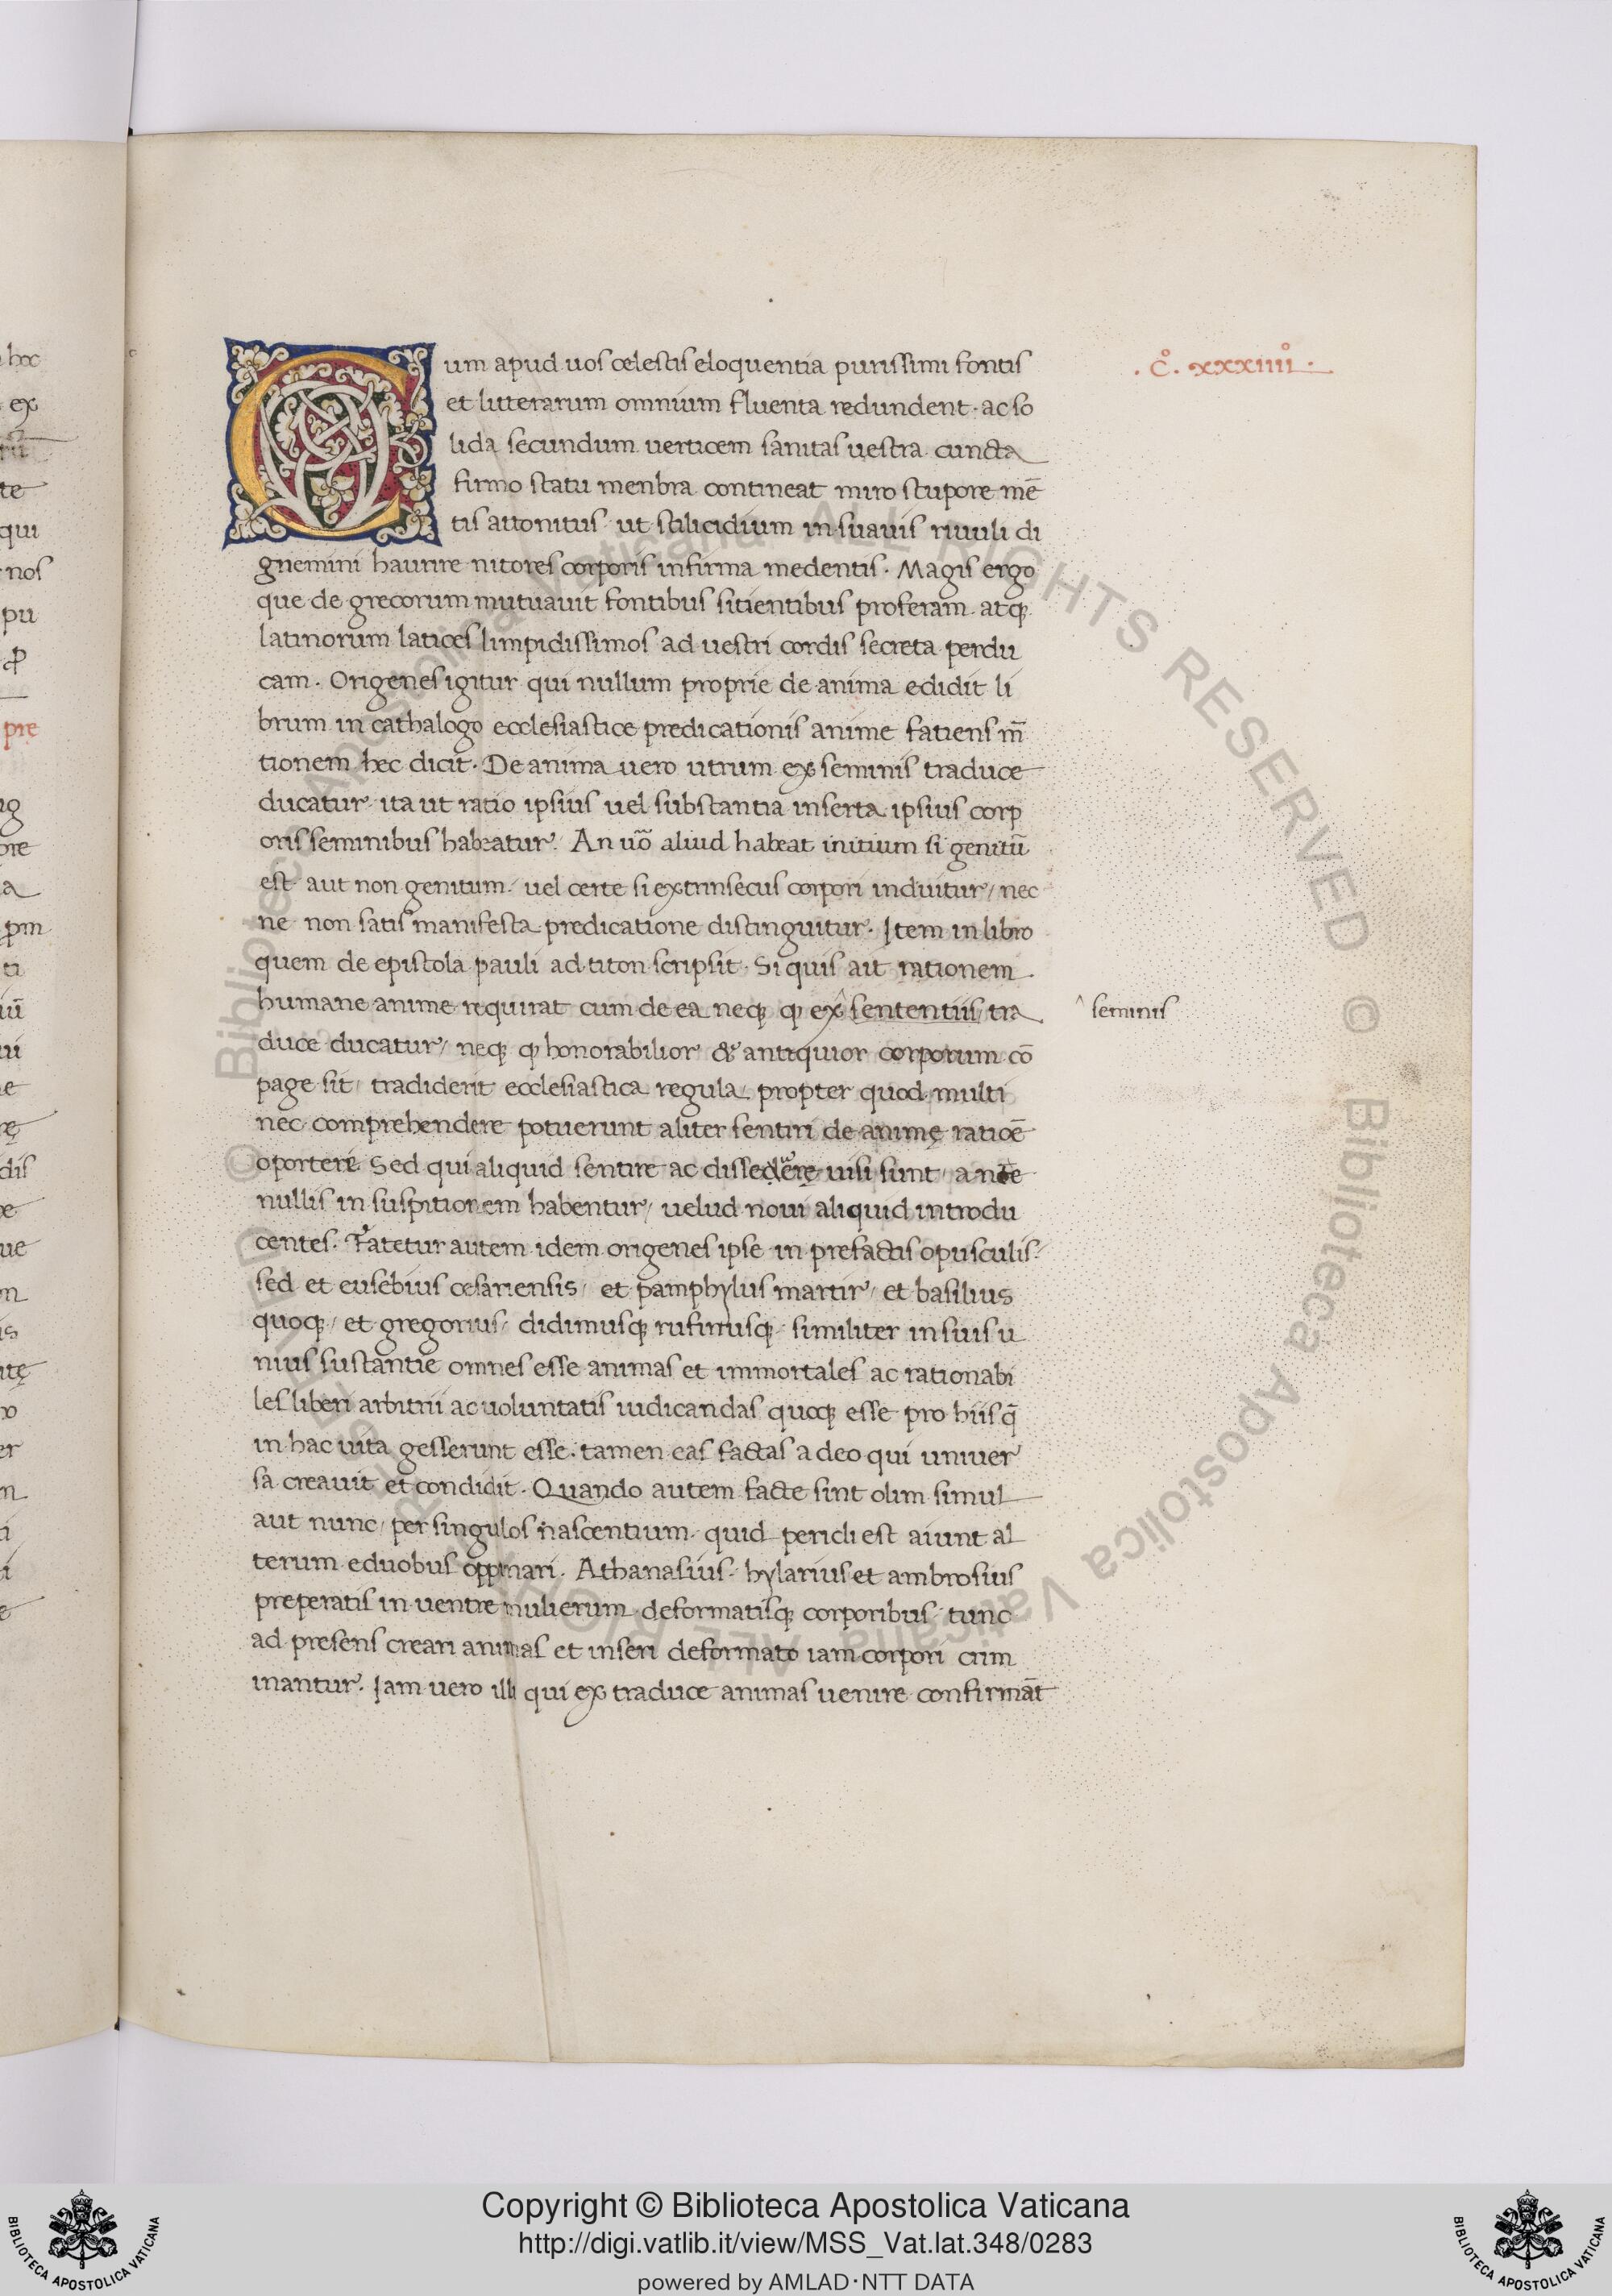 hoc
ex
te
qui
nos
pu
pre
a
ti
e
dis
e
ue
n
is
er
n
i
Cum apud uos celestis eloquentia purissimi fontis
. c̊. xxxiiii̊ .
et litterarum omnium fluenta redundent · ac so
lida secundum uerticem sanitas uestra cuncta
firmo statu menbra contineat miro stupore mē
tis attonitus ut stilicidium in suauis riuuli di
gnemini haurire nitores corporis infirma medentis · Magis ergo
que de grecorum mutuauit fontibus sitientibus proferam atq;
latinorum latices limpidissimos ad uestri cordis secreta perdu
cam · Origenes igitur qui nullum proprie de anima edidit li
brum in cathalogo ecclesiastice predicationis anime fatiens m̄
tionem hec dicit · De anima uero utrum ex seminis traduce
ducatur ita ut ratio ipsius uel substantia inserta ipsius corp
oris seminibus habeatur · An uo᷉ aliud habeat initium si genitū
est aut non genitum / uel certe si extrinsecus corpori induitur / nec
ne non satis manifesta predicatione distinguitur · Item in libro
quem de epistola pauli ad titon scripsit · Si quis ait rationem
humane anime requirat cum de ea neq; ꝙ ex^ sententiis tra
^ seminis
duce ducatur / neq; ꝙ honorabilior & antiquior corporum cō
page sit / tradiderit ecclesiastica regula / propter quod multi
nec comprehendere potuerunt aliter sentiri de animę ratioē
oportere Sed qui aliquid sentire ac uisi sunt a
nullis in suspitionem habentur / uelud noui aliquid introdu
centes · Fatetur autem idem origenes ipse in prefactis opusculis ·
sed et eusebius cesariensis / et pamphylus martir / et basilius
quoq; / et gregorius / didimusq; rufinusq; similiter in suis u
nius sustantie omnes esse animas et immortales ac rationabi
les liberi arbitrii ac uoluntatis iudicandas quoq; esse pro hiis q̄
in hac uita gesserunt esse · tamen eas factas a deo qui uniuer
sa creauit et condidit · Quando autem facte sint olim simul
aut nunc / per singulos nascentium quid pericli est aiunt al
terum eduobus oppinari · Athanasius · hylarius et ambrosius
preperatis in uentre mulierum deformatisq; corporibus tunc
ad presens creari animas et inseri deformato iam corpori cum
inantur · Iam uero illi qui ex traduce animas uenire confirmāt
© Biblioteca Apostolica Vaticana ALL RIGHTS RESERVED
© Biblioteca Apostolica Vaticana ALL RIGHTS RESERVED
Copyright © Biblioteca Apostolica Vaticana
http://digi.vatlib.it/view/MSS_Vat.lat.348/0283
powered by AMLAD·NTT DATA
BIBLIOTECA APOSTOLICA VATICANA
BIBLIOTECA APOSTOLICA VATICANA